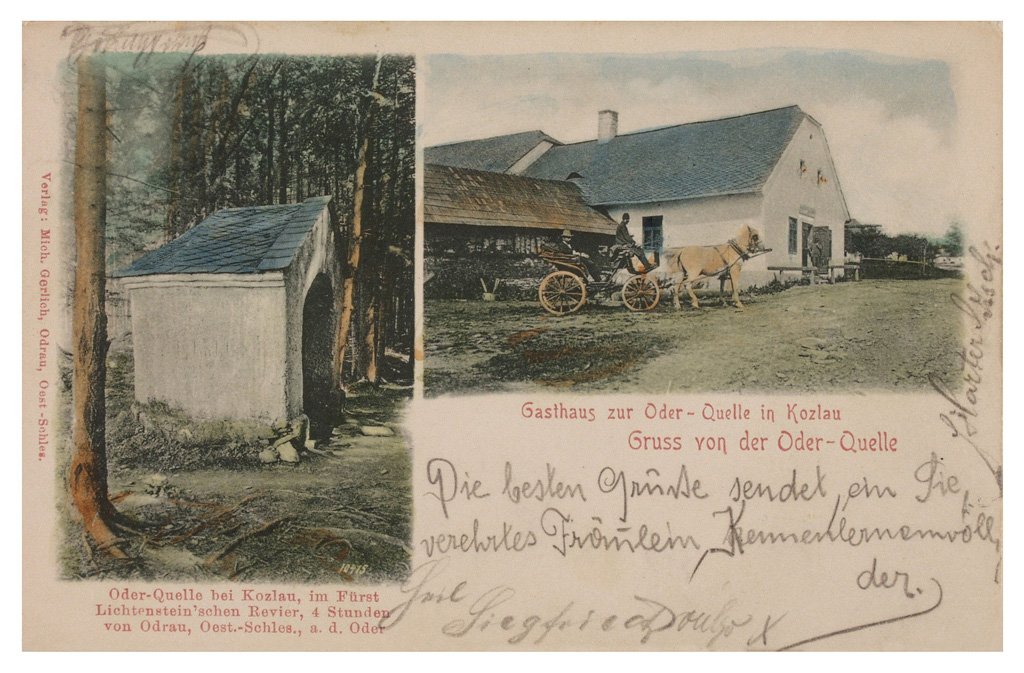 Verlag: Mich. Gerlich, Odrau, Oest.-Schles.
10475
Oder-Quelle bei Kozlau, im Fürst
Lichtenstein'schen Revier, 4 Stunden
von Odrau, Oest.-Schles., a. d. Oder
Gasthaus zur Oder-Quelle in Kozlau
Gruss von der Oder-Quelle
Die besten Grüße sendet ein Sie
verehrtes Fräulein, Kennenlernenwoll
der.
Siegfried